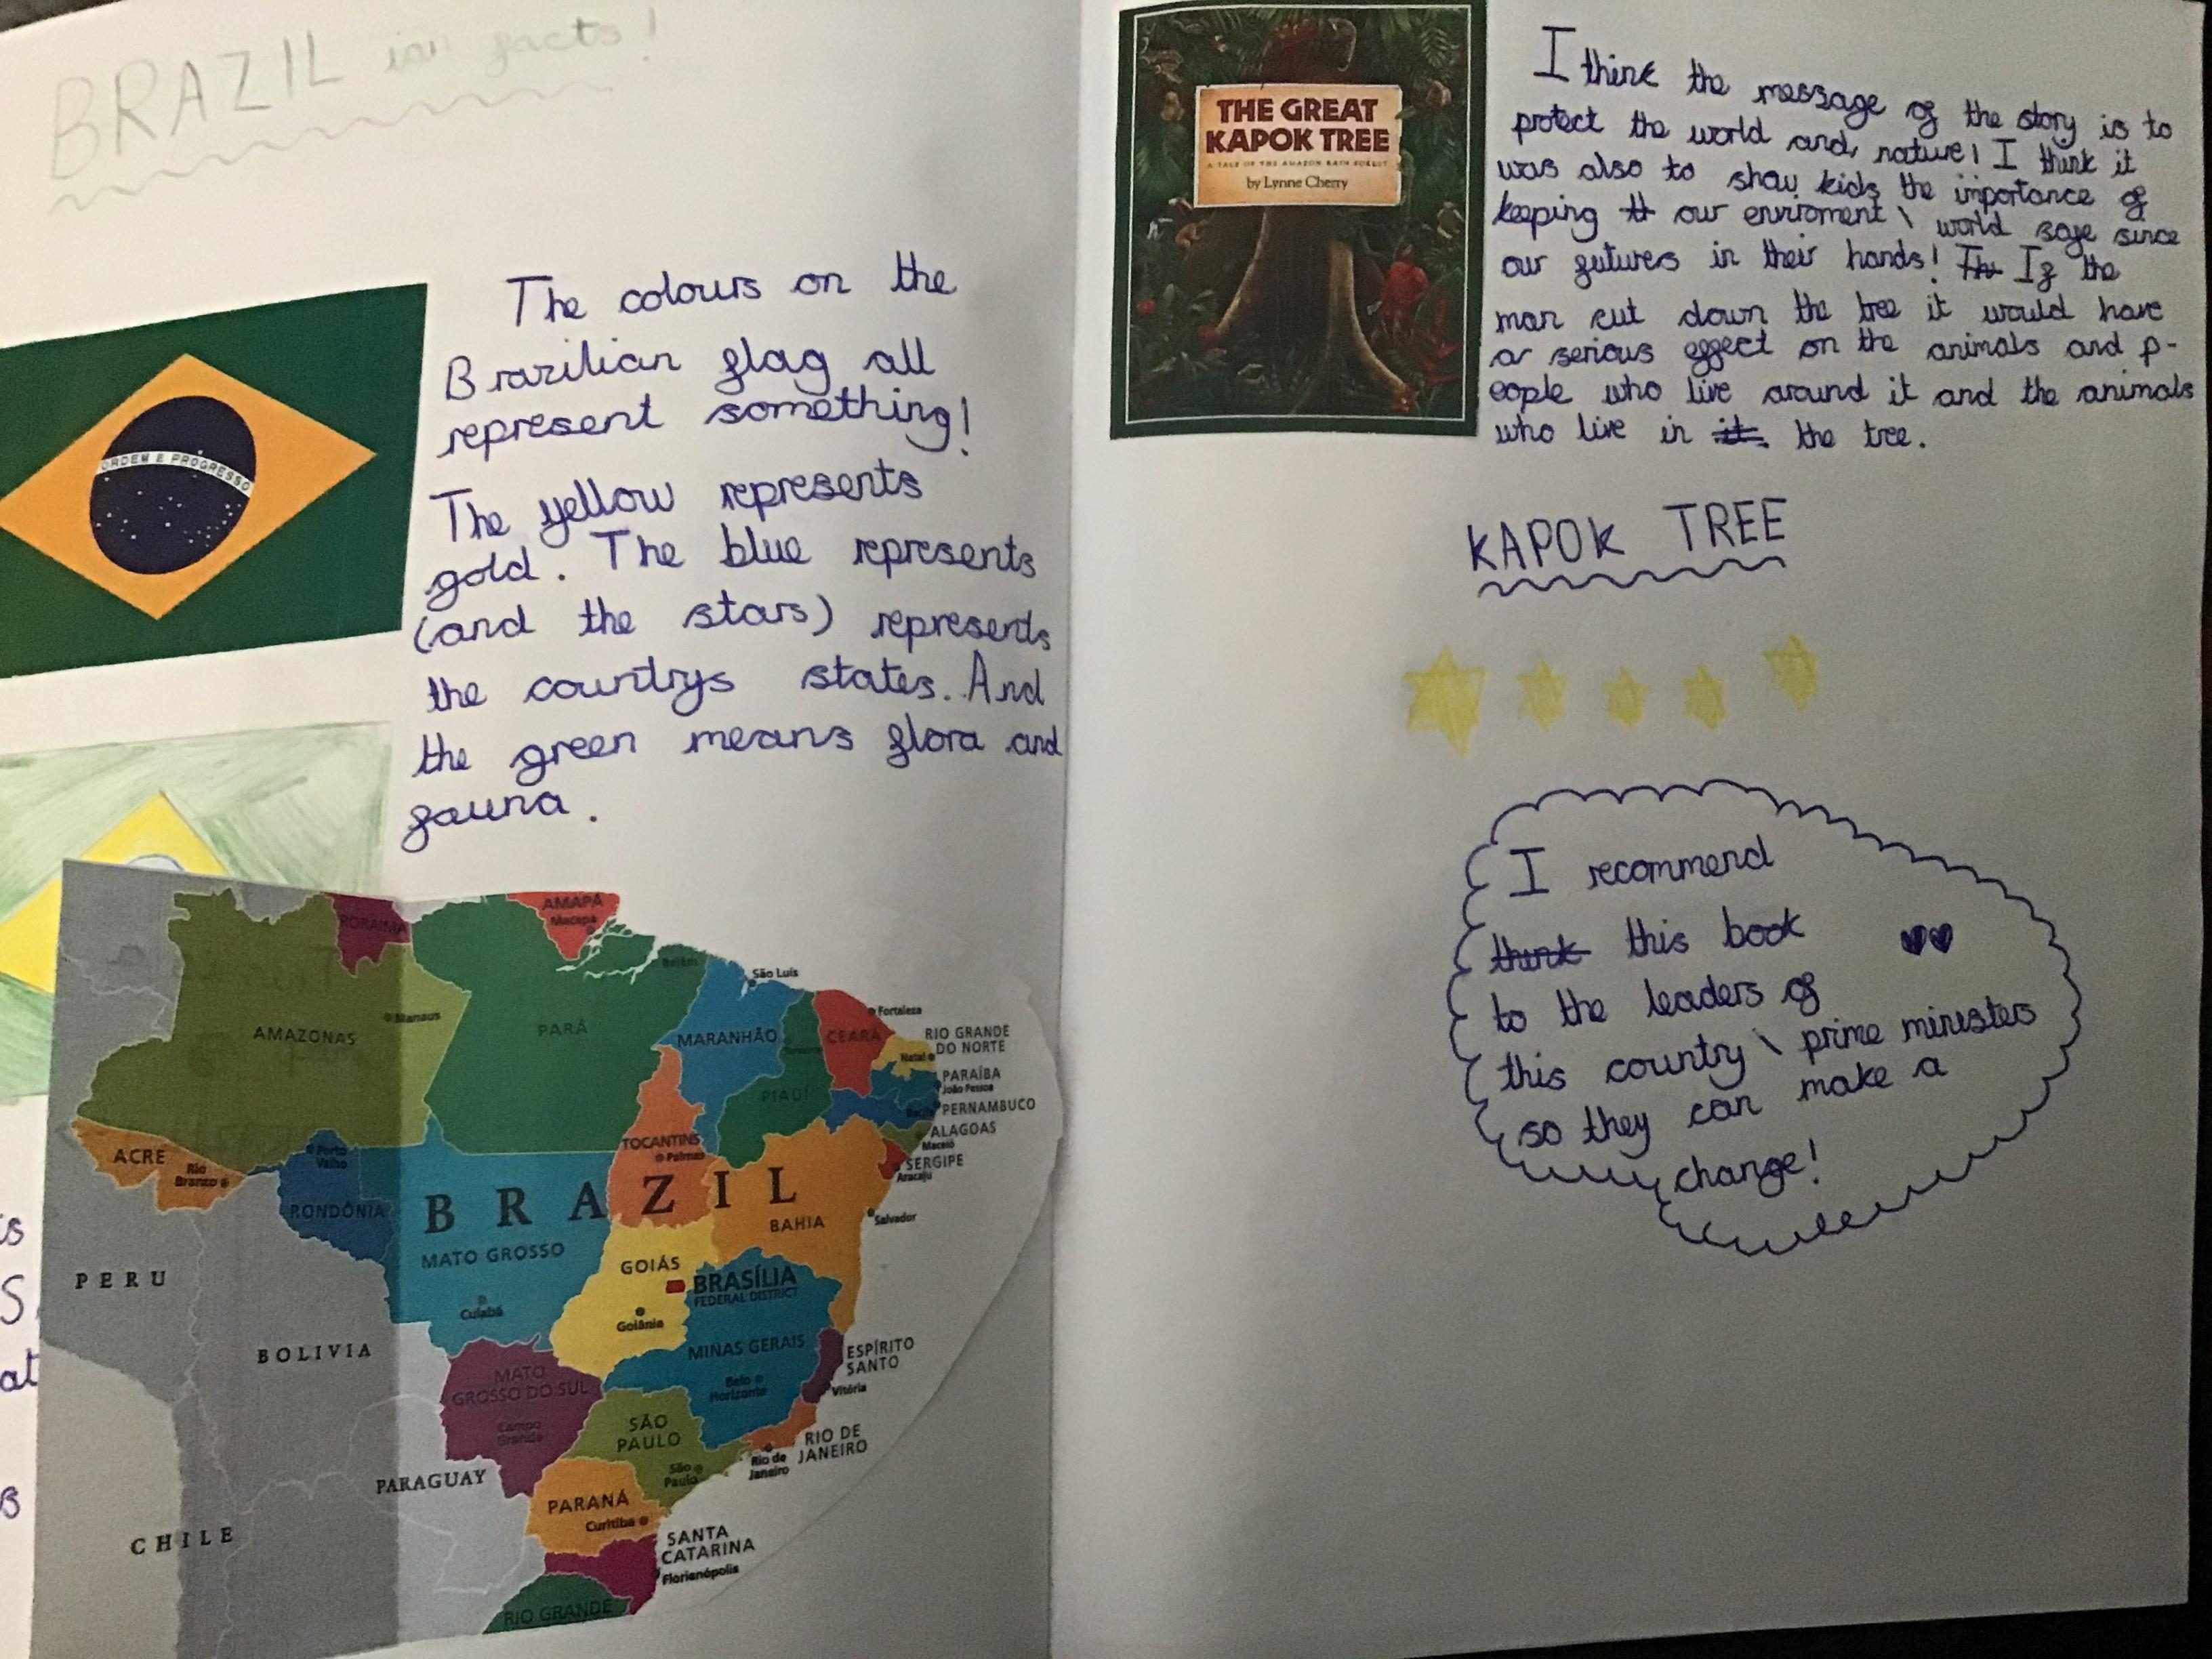 BRAZIL in facts!
ORDEM E PROGRESSO
The colours on the
Brazilian flag all
represent something!
The yellow represents
gold. The blue represents
(and the stars) represents
the countrys states. And
the green means flora and
fauna.
RORAIMA
AMAPÁ
Macapá
Belém
São Luís
Manaus
AMAZONAS
PARÁ
MARANHÃO
CEARÁ
Fortaleza
RIO GRANDE
DO NORTE
Natal
PARAÍBA
João Pessoa
PIAUÍ
PERNAMBUCO
Recife
ALAGOAS
Maceió
TOCANTINS
Palmas
SERGIPE
Aracaju
ACRE
Rio
Branco
Porto
Velho
RONDÔNIA
BRAZIL
BAHIA
Salvador
MATO GROSSO
Cuiabá
GOIÁS
Goiânia
BRASÍLIA
FEDERAL DISTRICT
PERU
BOLIVIA
MINAS GERAIS
Belo
Horizonte
ESPÍRITO
SANTO
Vitória
MATO
GROSSO DO SUL
Campo
Grande
SÃO
PAULO
São
Paulo
RIO DE
JANEIRO
Rio de
Janeiro
PARAGUAY
PARANÁ
Curitiba
CHILE
SANTA
CATARINA
Florianópolis
RIO GRANDE
is
S
at
THE GREAT
KAPOK TREE
A TALE OF THE AMAZON RAIN FOREST
by Lynne Cherry
I think the message of the story is to
protect the world and nature! I think it
was also to show kids the importance of
keeping our enviroment \ world safe since
our futures in their hands! If the
man cut down the tree it would have
a serious effect on the animals and p-
eople who live around it and the animals
who live in it. the tree.
KAPOK TREE
I recommend
think this book
to the leaders of
this country \ prime ministers
so they can make a
change!